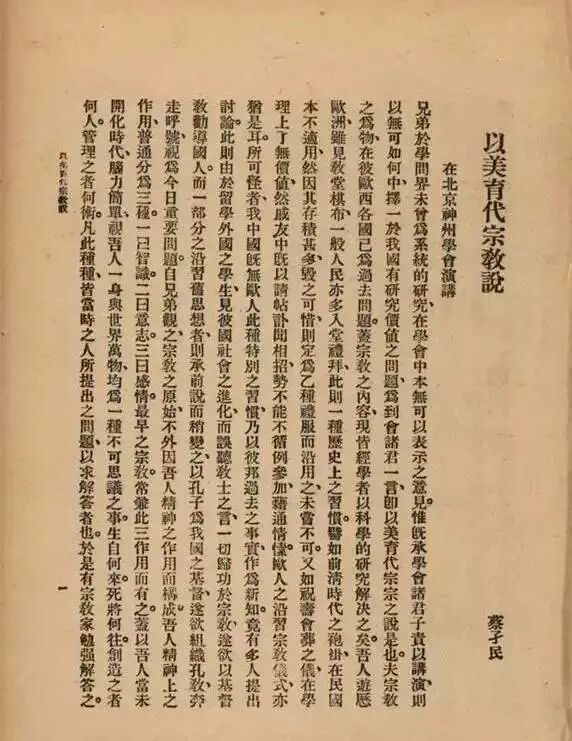 以美育代宗教說
在北京神州學會演講
蔡孑民
兄弟於學問界未曾爲系統的研究、在學會中本無可以表示之意見、惟旣承學會諸君子責以講演、則
以無可如何中、擇一於我國有研究價値之問題、爲到會諸君一言、卽以美育代宗宗之說是也。夫宗教
之爲物、在彼歐西各國、已爲過去問題。蓋宗教之內容、現皆經學者以科學的研究解決之矣。吾人遊歷
歐洲、雖見教堂棋布、一般人民亦多入堂禮拜、此則一種歷史上之習慣。譬如前淸時代之袍褂、在民國
本不適用、然因其存積甚多、毁之可惜、則定爲乙種禮服而沿用之、未嘗不可。又如祝壽會葬之儀、在學
理上了無價値、然戚友中旣以請帖訃聞相招、勢不能不循例參加、藉通情愫、歐人之沿習宗教儀式、亦
猶是耳。所可怪者、我中國旣無歐人此種特別之習慣、乃以彼邦過去之事實作爲新知、竟有多人提出
討論。此則由於留學外國之學生、見彼國社會之進化、而誤聽教士之言、一切歸功於宗教、遂欲以基督
教勸導國人。而一部分之沿習舊思想者、則承前說而稍變之、以孔子爲我國之基督、遂欲組織孔教、奔
走呼號、視爲今日重要問題。自兄弟觀之、宗教之原始、不外因吾人精神之作用而構成。吾人精神上之
作用、普通分爲三種、一曰智識、二曰意志、三曰感情。最早之宗教、常兼此三作用而有之。蓋以吾人當未
開化時代、腦力簡單、視吾人一身與世界萬物、均爲一種不可思議之事。生自何來、死將何往、創造之者
何人、管理之者何術、凡此種種、皆當時之人所提出之問題、以求解答者也。於是有宗教家勉强解答之。
以美育代宗教說
一